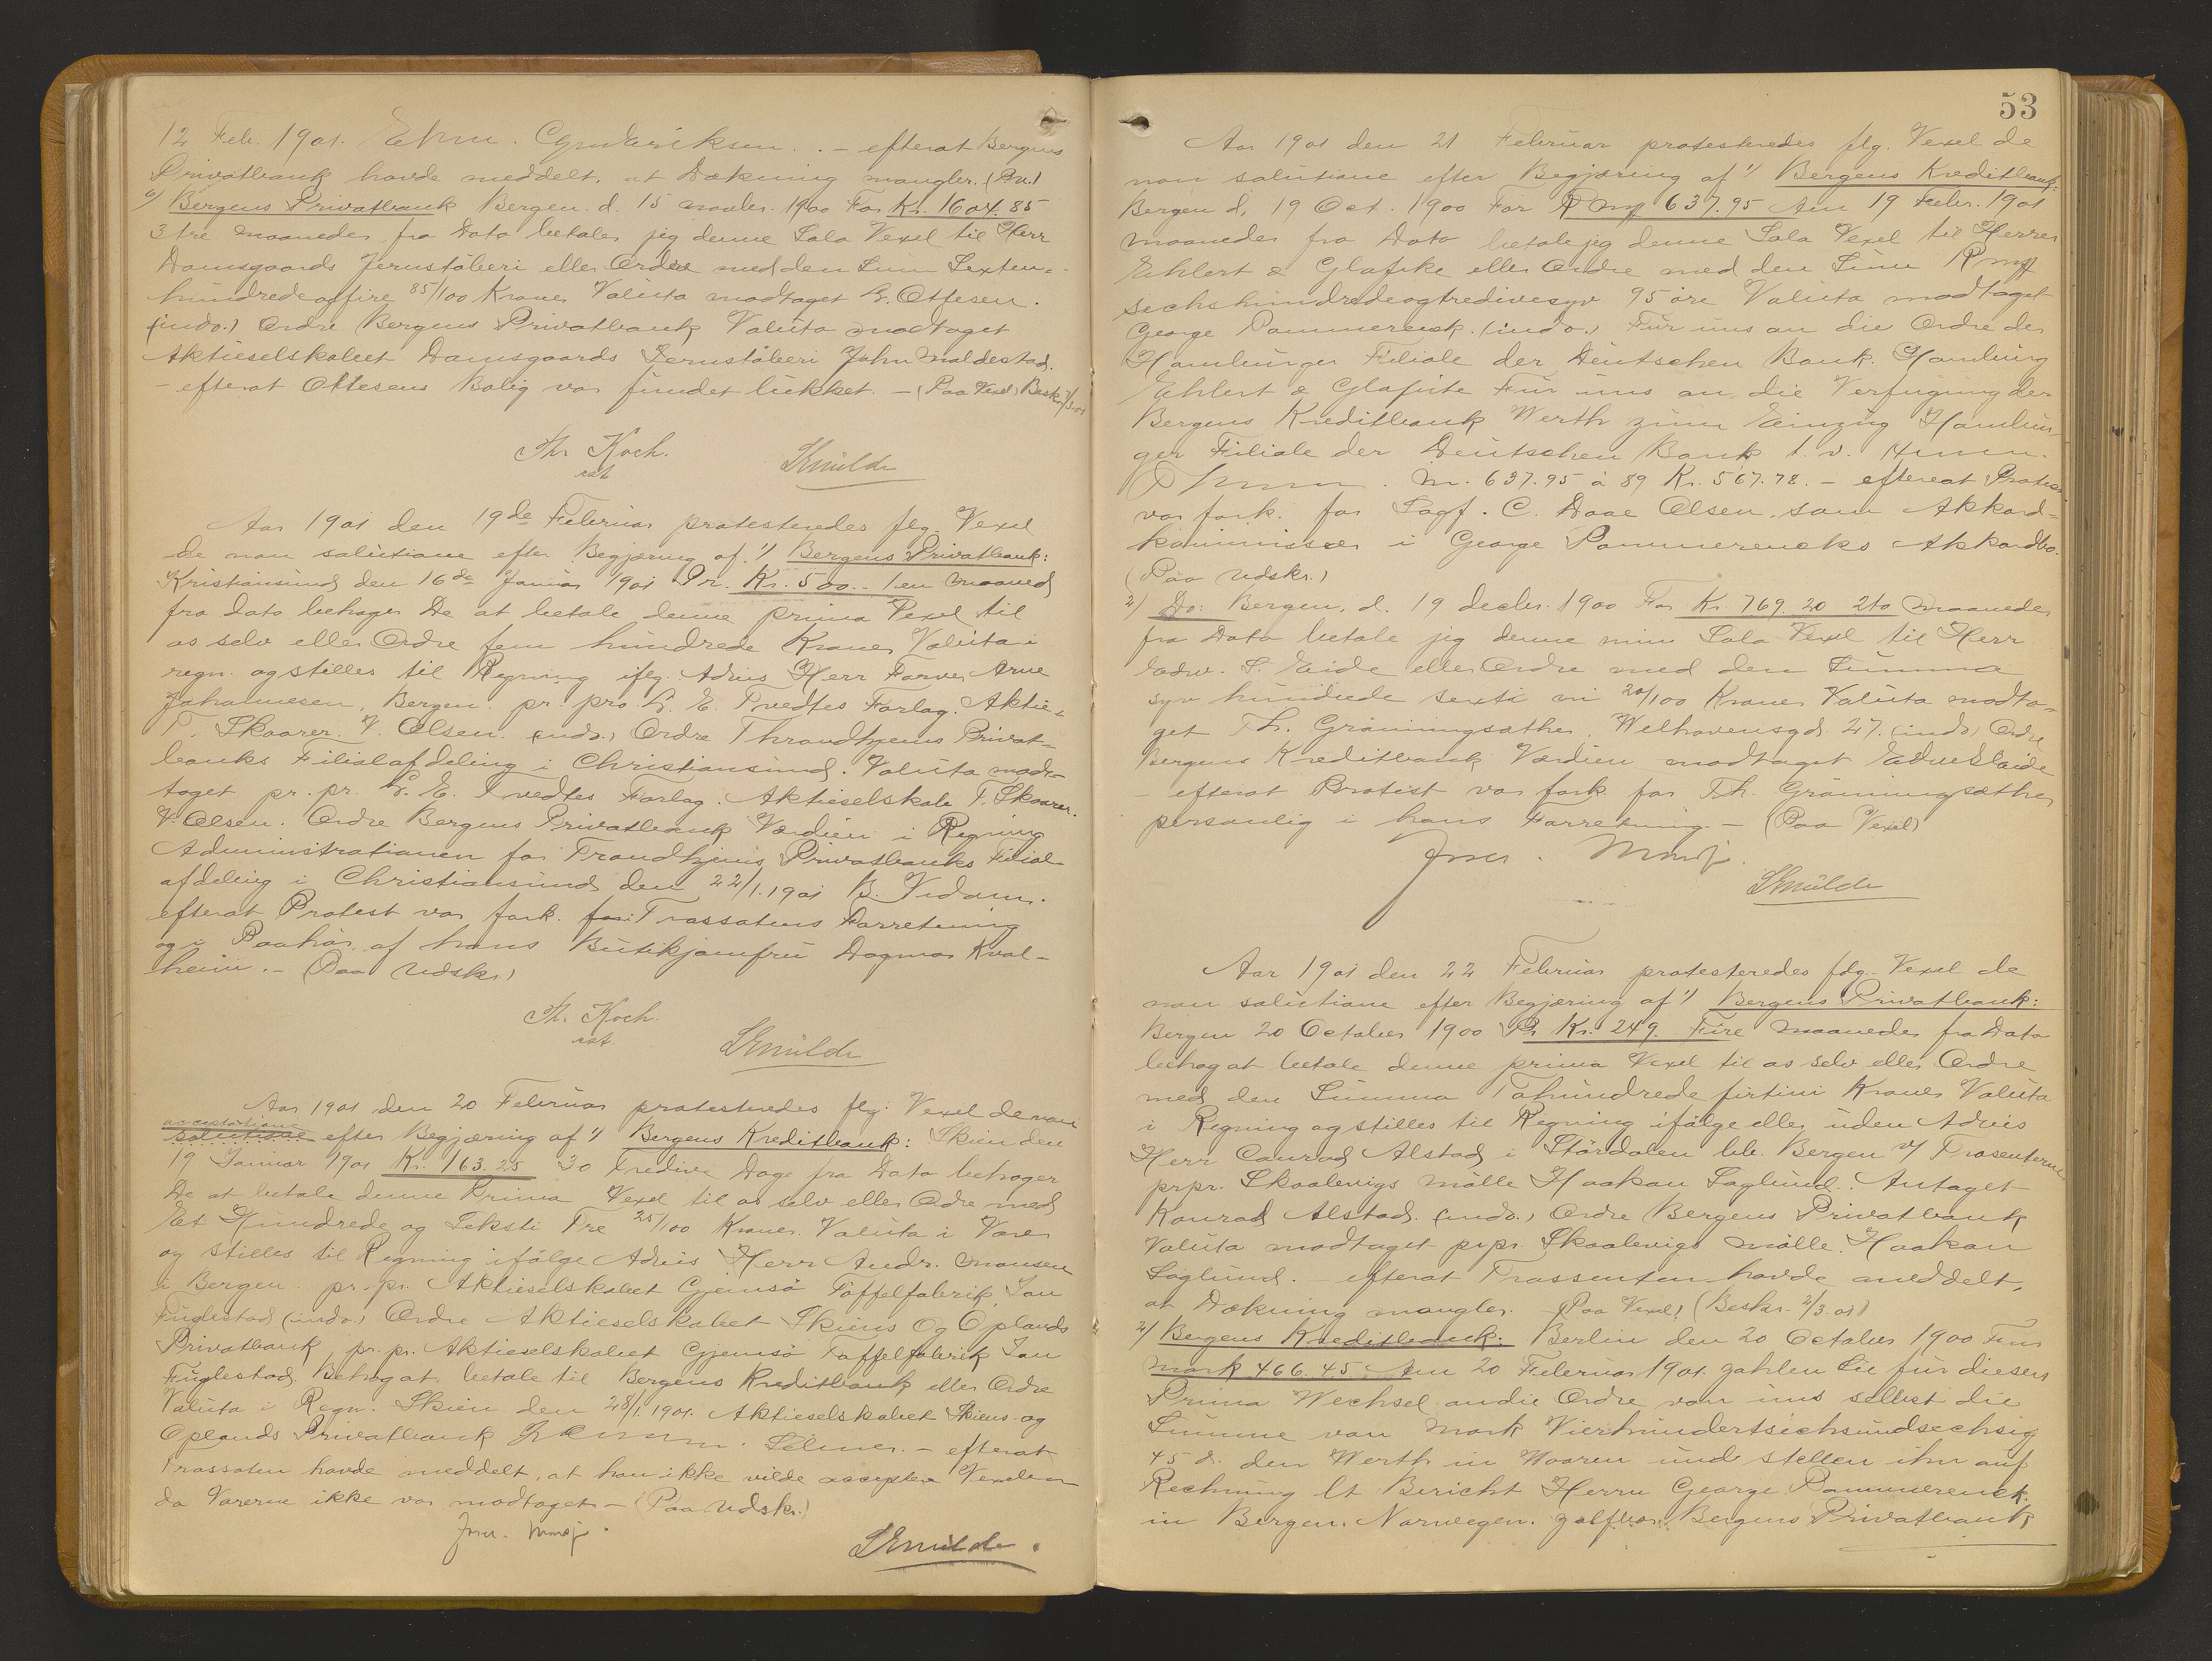 12 Feb. 1901. . - efterat Bergens
Privatbank havde meddelt, at Dækning mangler. (P.V.)
6) Bergens Privatbank Bergen d. 15 novbr. 1900 For Kr. 1604.85
3 tre maaneder fra Dato betaler jeg denne Sola Vexel til Herr
Damsgaards Jernstøberi eller Ordre med den Sum Sexten-
hundredeogfire 85/100 Kroner Valuta modtaget G. Ottesen.
(indo.) Ordre Bergens Privatbank Valuta modtaget
Aktieselskabet Damsgaards Jernstøberi John Maldestad.
- efterat Ottesens Bolig var fundet lukket. - (Paa Vexel) Beskr. 7/3.01
Th Koch.
cst
Smulde
Aar 1901 den 19de Februar protesteredes flg. Vexel
de non solutione efter Begjæring af 1) Bergens Privatbank:
Kristiansund den 16de Januar 1901 Pr. Kr. 500.- 1 en maaned
fra dato behager De at betale denne prima Vexel til
os selv eller Ordre fem hundrede Kroner Valuta i
regn. og stilles til Regning iflg. Advis Herr Farver Arne
Johannesen, Bergen. pr. pro. L. E. Tvedtes Forlag. Aktie-
T. Skaarer. V. Olsen. (indo.) Ordre Throndhjems Privat-
banks Filialafdeling i Christiansund. Valuta mod-
taget pr. pr. L. E. Tvedtes Forlag. Aktieselskab T. Skaarer.
V. Olsen. Ordre Bergens Privatbank Værdien i Regning
Administrationen for Trondhjems Privatbanks Filial-
afdeling i Christiansund den 22/1.1901 B. Vidam.
efterat Protest var fork. for Trassatens Forretning
og i Paahør af hans Butikjomfru Dagmar Kval-
heim. - (Paa Udskr.)
Th. Koch.
cst.
Smulde
Aar 1901 den 20 Februar protesteredes flg. Vexel de non
acceptatione
solutione efter Begjæring af 1) Bergens Kreditbank: Skien den
19 Januar 1901 Kr. 163.25 30 Tredive Dage fra Dato behager
De at betale denne Prima Vexel til os selv eller Ordre med
Et Hundrede og Seksti Tre 25/100 Kroner. Valuta i Varer
og stilles til Regning ifølge Advis Herr Andr. Monsen
i Bergen. pr. pr. Aktieselskabet Gjemsø Tøffelfabrik, Jan
Fuglestad (indo) Ordre Aktieselskabet Skiens Og Oplands
Privatbank, pr. pr. Aktieselskabet Gjemsø Tøffelfabrik Jan
Fuglestad. Behag at betale til Bergens Kreditbank eller Ordre
Valuta i Regn. Skien den 28/1.1901. Aktieselskabet Skiens og
Oplands Privatbank . - efterat
Trassaten havde meddelt, at han ikke vilde acceptere Vexelen
da Varerne ikke var modtaget - (Paa Udskr.)
Smulde.
53
Aar 1901 den 21 Februar protesteredes flg. Vexel de
non solutione efter Begjæring af 1) Bergens Kreditbank:
Bergen d. 19 Oct. 1900 For Rmk 637.95 den 19 Febr. 1901
maaneder fra Dato betale jeg denne Sola Vexel til Herrer
Ehlert & Glafcke eller Ordre med den Sum Rmk
sechshundredeogtredivesyv 95 øre Valuta modtaget
George Pommerenck. (indo.) Für uns an die Ordre der
Hamburger Filiale der Deutschen Bank. Hamburg
Ehlert & Glafcke Für uns an die Verfügung der
Bergens Kreditbank Werth zum Einzug Hambur-
ger Filiale der Deutschen Bank
. M. 637.95 à 89 Kr. 567.78. - efterat Protest
var fork. for Sagf. C. Daae Olsen, som Akkord-
kommissær i George Pommerencks Akkordbo.
(Paa Udskr.)
2) Do: Bergen, d. 19 decbr. 1900 For Kr. 769.20 2 to maaneder
fra Dato betale jeg denne min Sola Vexel til Herr
Edw. S. Eide eller Ordre med den Summa
syv hundrede sexti ni 20/100 Kroner Valuta modta-
get Th. Grønningsæther, Welhavensgd. 27. (indo) Ordre
Bergens Kreditbank Værdien modtaget Edw S Eide
- efterat Protest var fork. for Th. Grønningsæther
personlig i hans Forretning. - (Paa Vexel)
Smulde
Aar 1901 den 22 Februar protesteredes flg. Vexel de
non solutione efter Begjæring af 1) Bergens Privatbank:
Bergen 20 October 1900 Pr Kr. 249. Fire maaneder fra Dato
behag at betale denne prima Vexel til os selv eller Ordre
med den Summa Tohundrede firtini Kroner Valuta
i Regning og stilles til Regning ifølge eller uden Advis
Herr Conrad Alstad i Størdalen bb. Bergen v/ Trasenterne
prpr. Skaalevigs Mølle Haakon Søglund. Antaget
Konrad Alstad. (indo.) Ordre Bergens Privatbank
Valuta modtaget prpr. Skaalevigs mølle. Haakon
Søglund. - efterat Trassenten havde meddelt,
at Dækning mangler. (Paa Vexel) (Beskr. 2/3.01)
2) Bergens Kreditbank: Berlin den 20 October 1900 Für
Mark 466.45 Am 20 Februar 1901 zahlen Sie für diesen
Prima Wechsel an die Ordre von uns selbst die
Summe von Mark Vierhundertsechsundsechsig
45 d. den Werth in Waaren und stellen ihn auf
Rechnung lt Bericht Herrn George Pommerenck.
in Bergen. Norwegen. zahlbar Bergens Privatbank